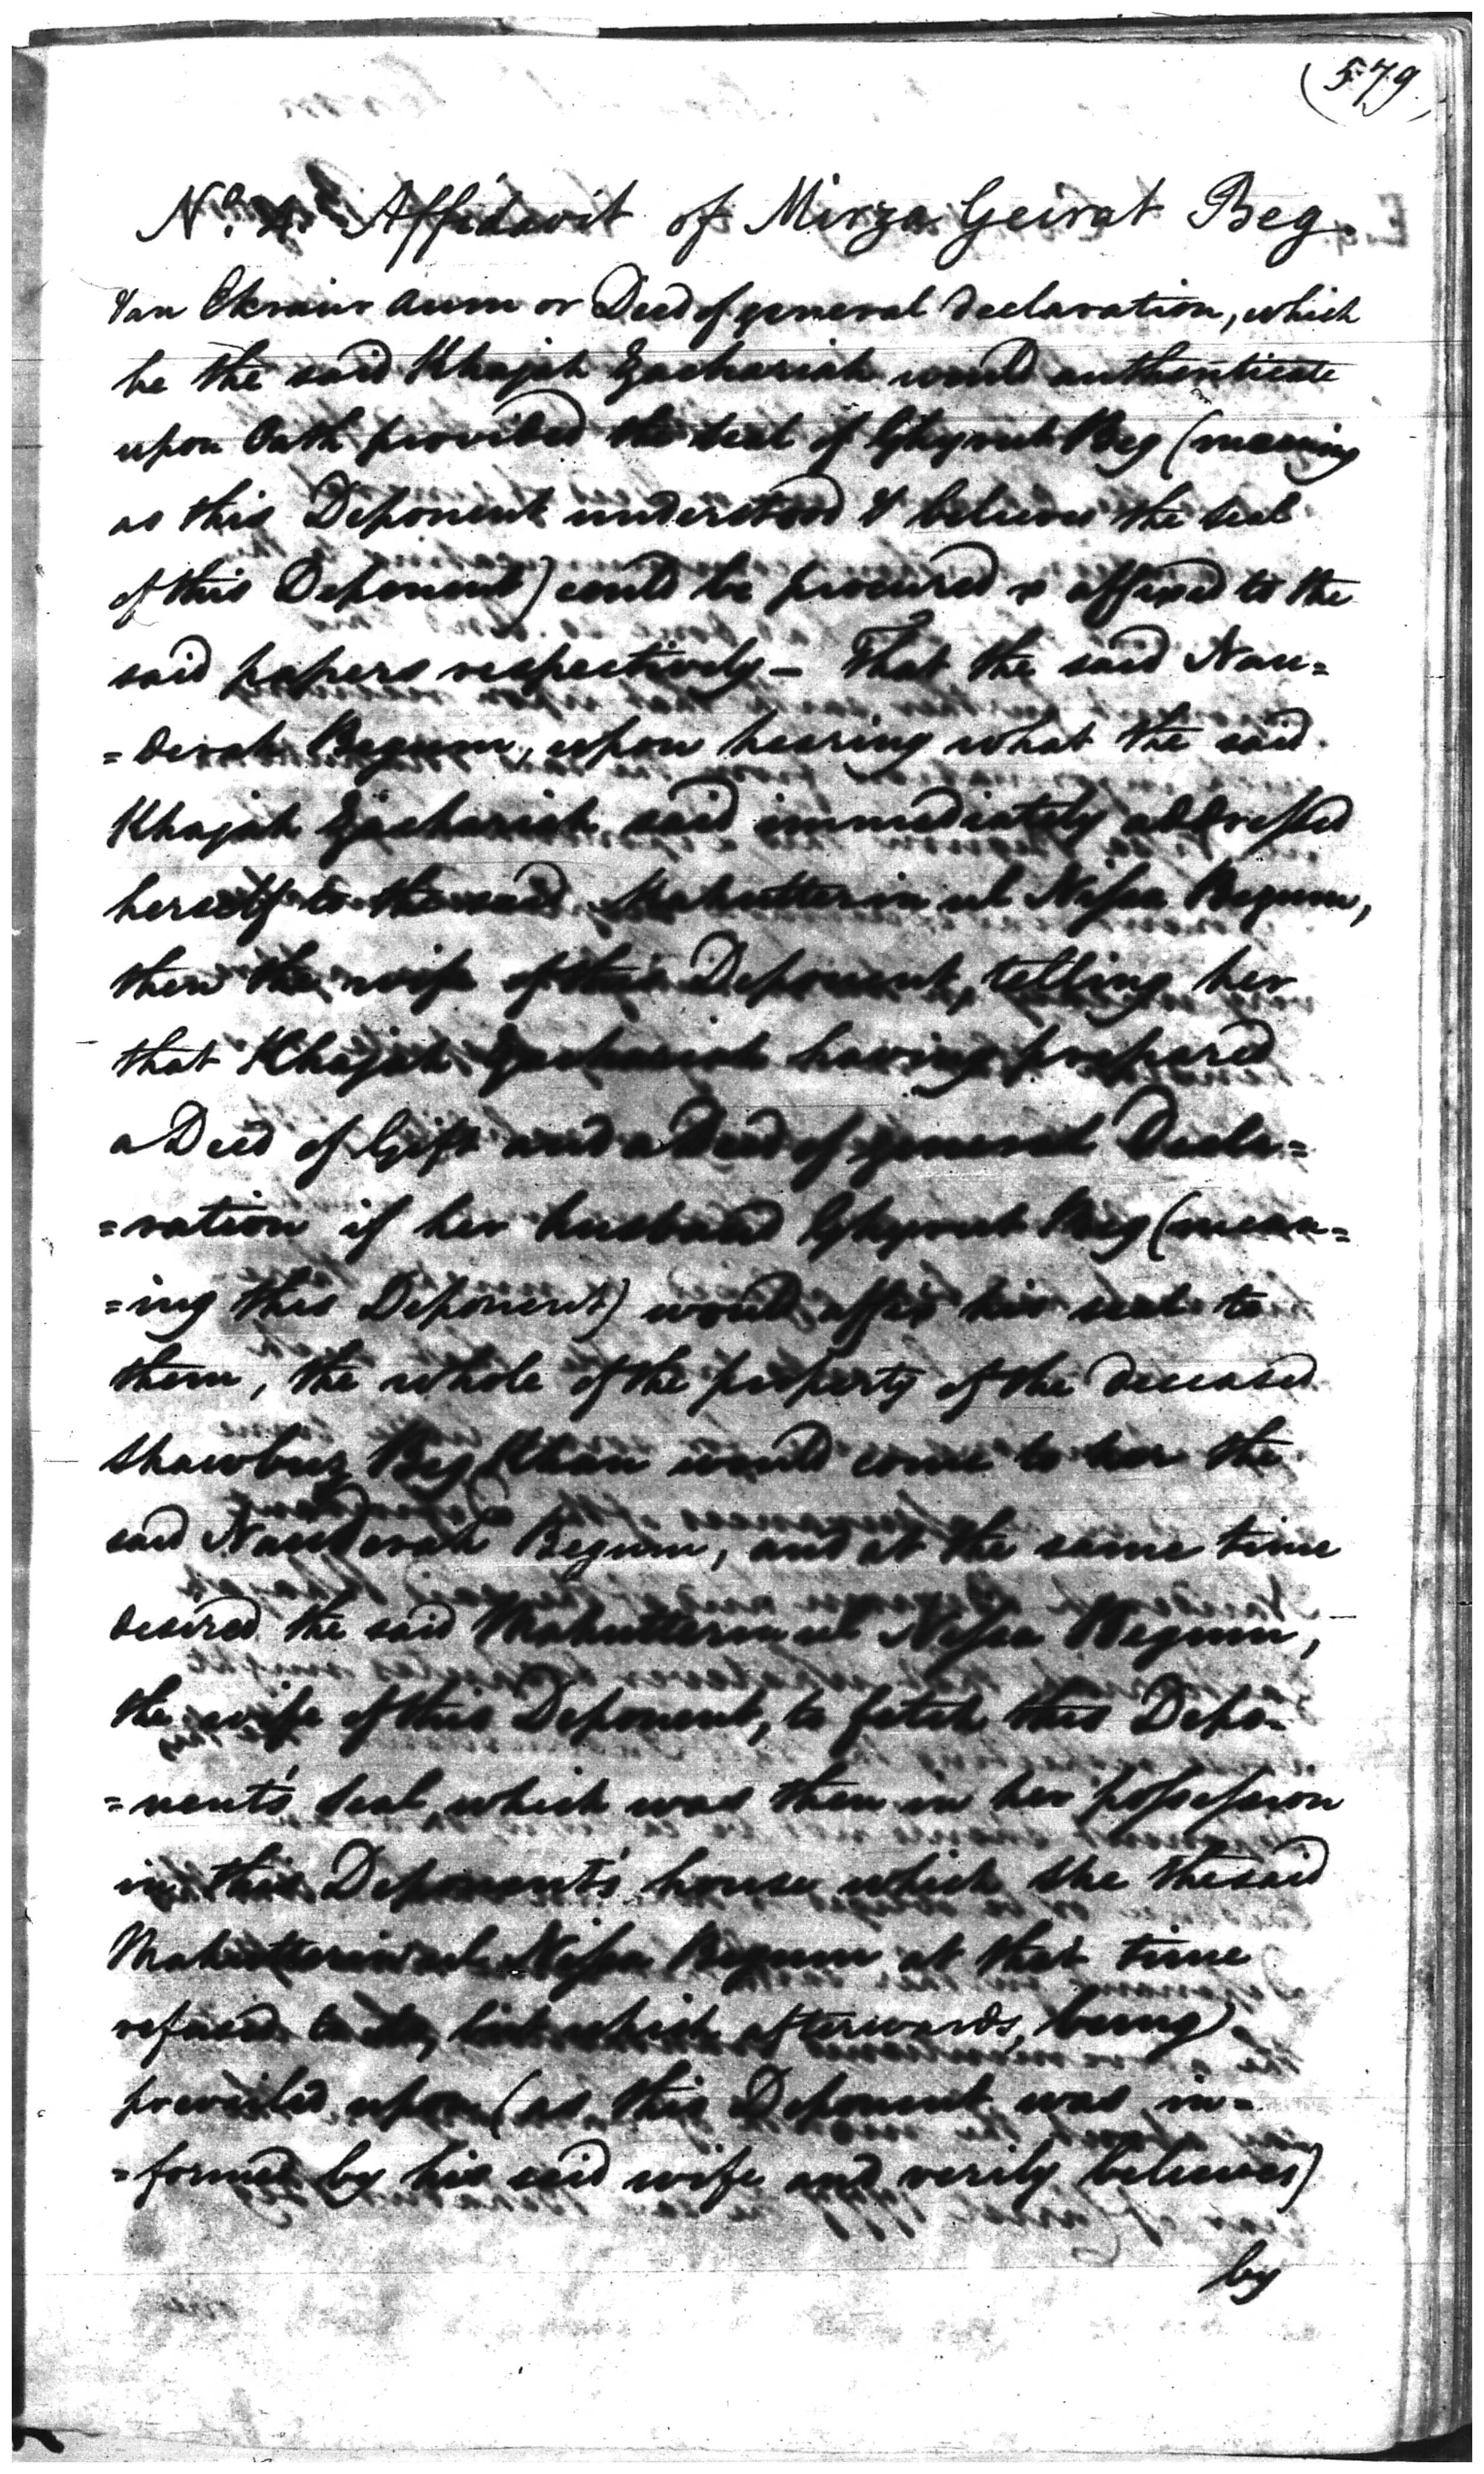 (579)
No. Affidavit of Mirza Geirat Beg.
& an Ekraur Aum or Deed of general declaration, which
he the said Khajah Zachariah would authenticate
upon Oath provided the seal of Ghyrut Beg (meaning
as this Deponent understood & believes the seal
of this Deponent) could be procured & affixed to the
said papers respectively - That the said Nau=
=derah Begum, upon hearing what the said
Khajah Zachariah said immediately addressed
herself to the said Mahutterim ul Nissa Begum,
then the wife of this Deponent, telling her
that Khajah Zachariah having prepared
a Deed of Gift and a Deed of general Decla=
=ration if her husband Ghyrut Beg (mean=
=ing this Deponent) would affix his seal to
them, the whole of the property of the deceased
Shawbuz Beg Khan would come to her the
said Nauderah Begum, and at the same time
desired the said Mahutterim ul Nissa Begum,
the wife of this Deponent, to fetch this Depo=
=nent's seal, which was then in her possession
in this Deponent's house which she the said
Mahutterim ul Nissa Begum at that time
refused to do, but which afterwards, being
prevailed upon (as this Deponent was in=
=formed by his said wife and verily believes)
by